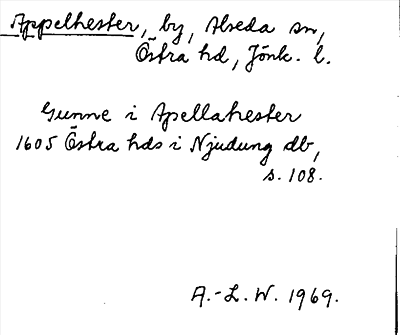 Appelhester, by, Alseda sn,
Östra hd, Jönk. l.
Gunne i Apellahester
1605 Östra hds i Njudung db,
s. 108.
A.-L. W. 1969.